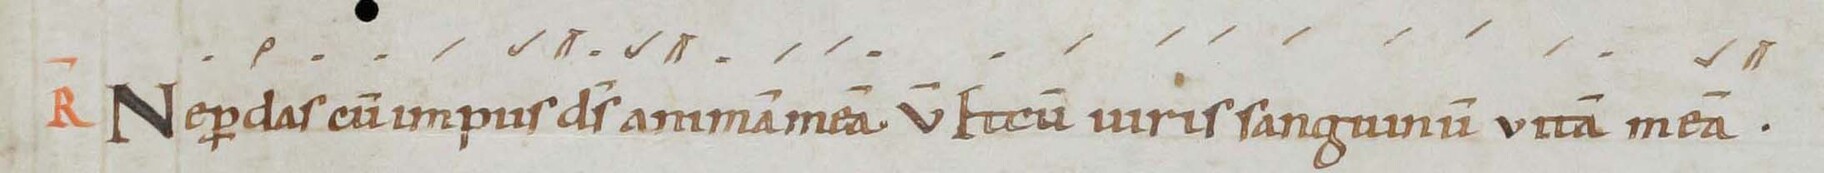 R̄ Neꝑdas cū impiis d̄s animā meā. V̄ Et cū uiris sanguinū vitā meā.